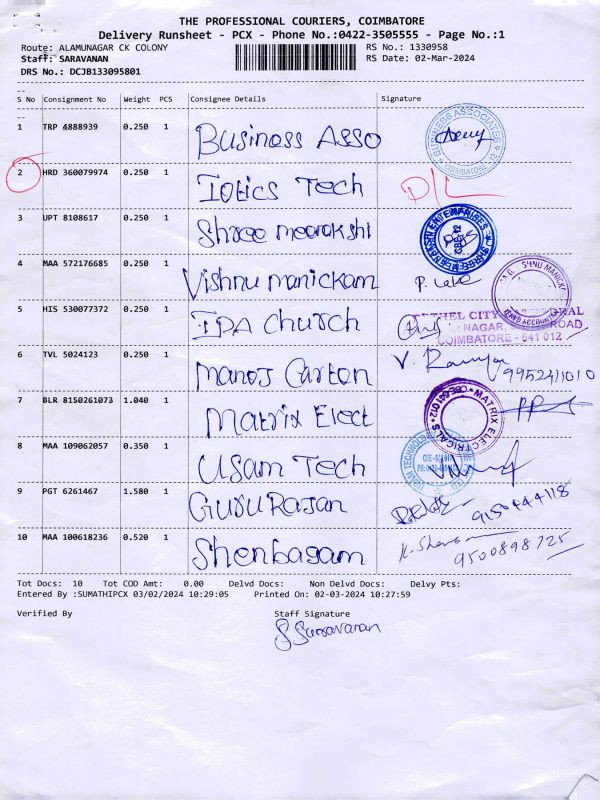 THE PROFESSIONAL COURIERS, COIMBATORE
Delivery Runsheet - PCX - Phone No.:0422-3505555 - Page No.:1
Route: ALAMUNAGAR CK COLONY
RS No.: 1330958
Staff: SARAVANAN
RS Date: 02-Mar-2024
DRS No.: DCJB133095801
S No Consignment No Weight PCS Consignee Details Signature
1 TRP 4888939 0.250 1 Business Asso
BUSINESS ASSOCIATES COIMBATORE
2 HRD 360079974 0.250 1 Iotics Tech D/L
3 UPT 8108617 0.250 1 Shree meenakshi
SHREE MEENAKSHI ENTERPRISES CBE-12
4 MAA 572176685 0.250 1 Vishnu manickam
5 HIS 530077372 0.250 1 IPA Church
BETHEL CITY
NAGAR, ROAD
COIMBATORE - 641 012
6 TVL 5024123 0.250 1 Manoj Carton
9952411010
7 BLR 8150261073 1.040 1 Matrix Elect
MATRIX ELECTRICALS
8 MAA 109062057 0.350 1 Usam Tech
9 PGT 6261467 1.580 1 GURURAJAN
10 MAA 100618236 0.520 1 Shenbagam
9500898725
Tot Docs: 10 Tot COD Amt: 0.00 Delvd Docs: Non Delvd Docs: Delvy Pts:
Entered By :SUMATHIPCX 03/02/2024 10:29:05 Printed On: 02-03-2024 10:27:59
Verified By Staff Signature
S Saravanan